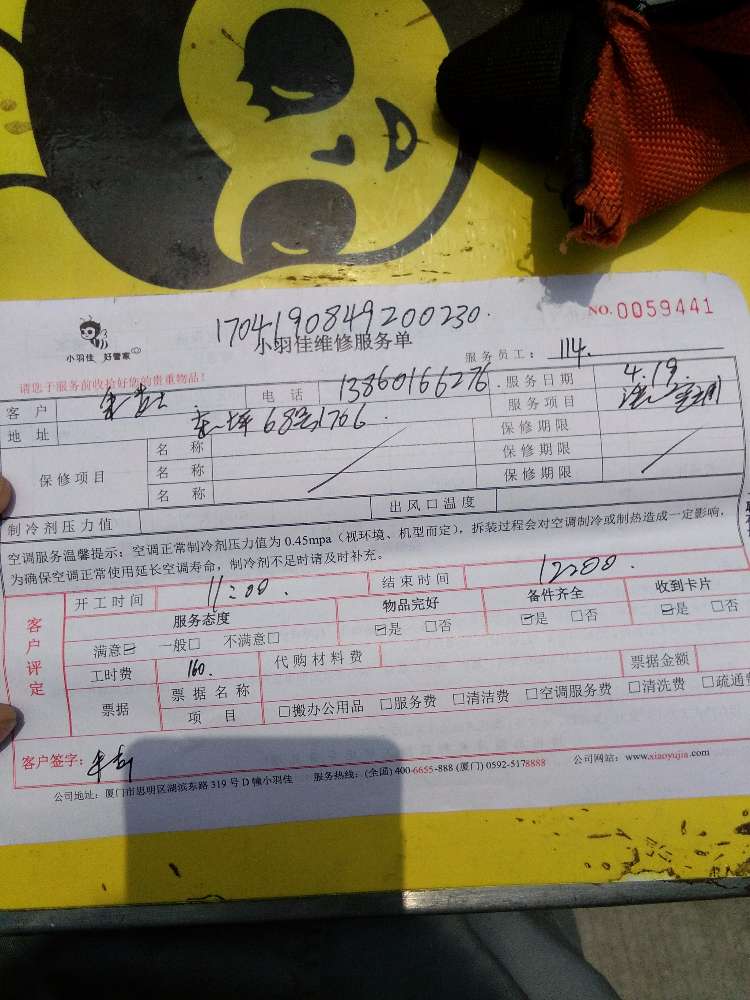 NO.0059441
170419084920230
小羽佳 好管家
小羽佳维修服务单
服务员工：114.
请您于服务前收拾好您的贵重物品！
客户 电话 13860166276. 服务日期 4.19.
地址 68号1706. 服务项目 洗空调
保修项目 名称 保修期限
名称 保修期限
名称 保修期限
制冷剂压力值 出风口温度
空调服务温馨提示：空调正常制冷剂压力值为 0.45mpa（视环境、机型而定），拆装过程会对空调制冷或制热造成一定影响，
为确保空调正常使用延长空调寿命，制冷剂不足时请及时补充。
客户评定
开工时间 11:00. 结束时间 12:00.
服务态度 物品完好 备件齐全 收到卡片
满意☑ 一般□ 不满意□ ☑是 □否 ☑是 □否 ☑是 □否
工时费 160. 代购材料费 票据金额
票据 票据名称
项目 □搬办公用品 □服务费 □清洁费 □空调服务费 □清洗费 □疏通费
客户签字：
公司地址：厦门市思明区湖滨东路 319 号 D 幢小羽佳 服务热线：(全国) 400-6655-888 (厦门) 0592-5178888 公司网站：www.xiaoyujia.com